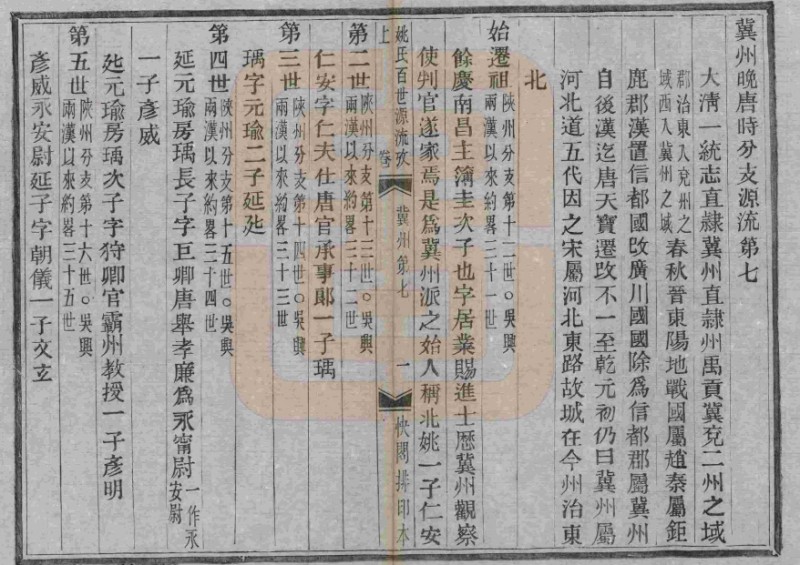 冀州晚唐時分支源流第七
大清一統志直隸冀州直隸州禹貢冀兗二州之域
郡治東入兗州之
域西入冀州之域
春秋晉東陽地戰國屬趙秦屬鉅
鹿郡漢置信都國改廣川國國除爲信都郡屬冀州
自後漢迄唐天寶遷改不一至乾元初仍曰冀州屬
河北道五代因之宋屬河北東路故城在今州治東
北
始遷祖
陝州分支第十二世○吳興
兩漢以來約畧三十一世
餘慶南昌主簿圭次子也字居業賜進士歷冀州觀察
使判官遂家焉是爲冀州派之始人稱北姚一子仁安
姚氏百世源流攷
卷上
冀州第七
一
快閣排印本
第二世
陝州分支第十三世○吳興
兩漢以來約畧三十二世
仁安字仁夫仕唐官承事郞一子瑀
第三世
陝州分支第十四世○吳興
兩漢以來約畧三十三世
瑀字元瑜二子延㐌
第四世
陝州分支第十五世○吳興
兩漢以來約畧三十四世
延元瑜房瑀長子字巨卿唐舉孝廉爲永甯尉
一作永
安尉
一子彥威
㐌元瑜房瑀次子字狩卿官霸州教授一子彥明
第五世
陝州分支第十六世○吳興
兩漢以來約畧三十五世
彥威永安尉延子字朝儀一子文玄